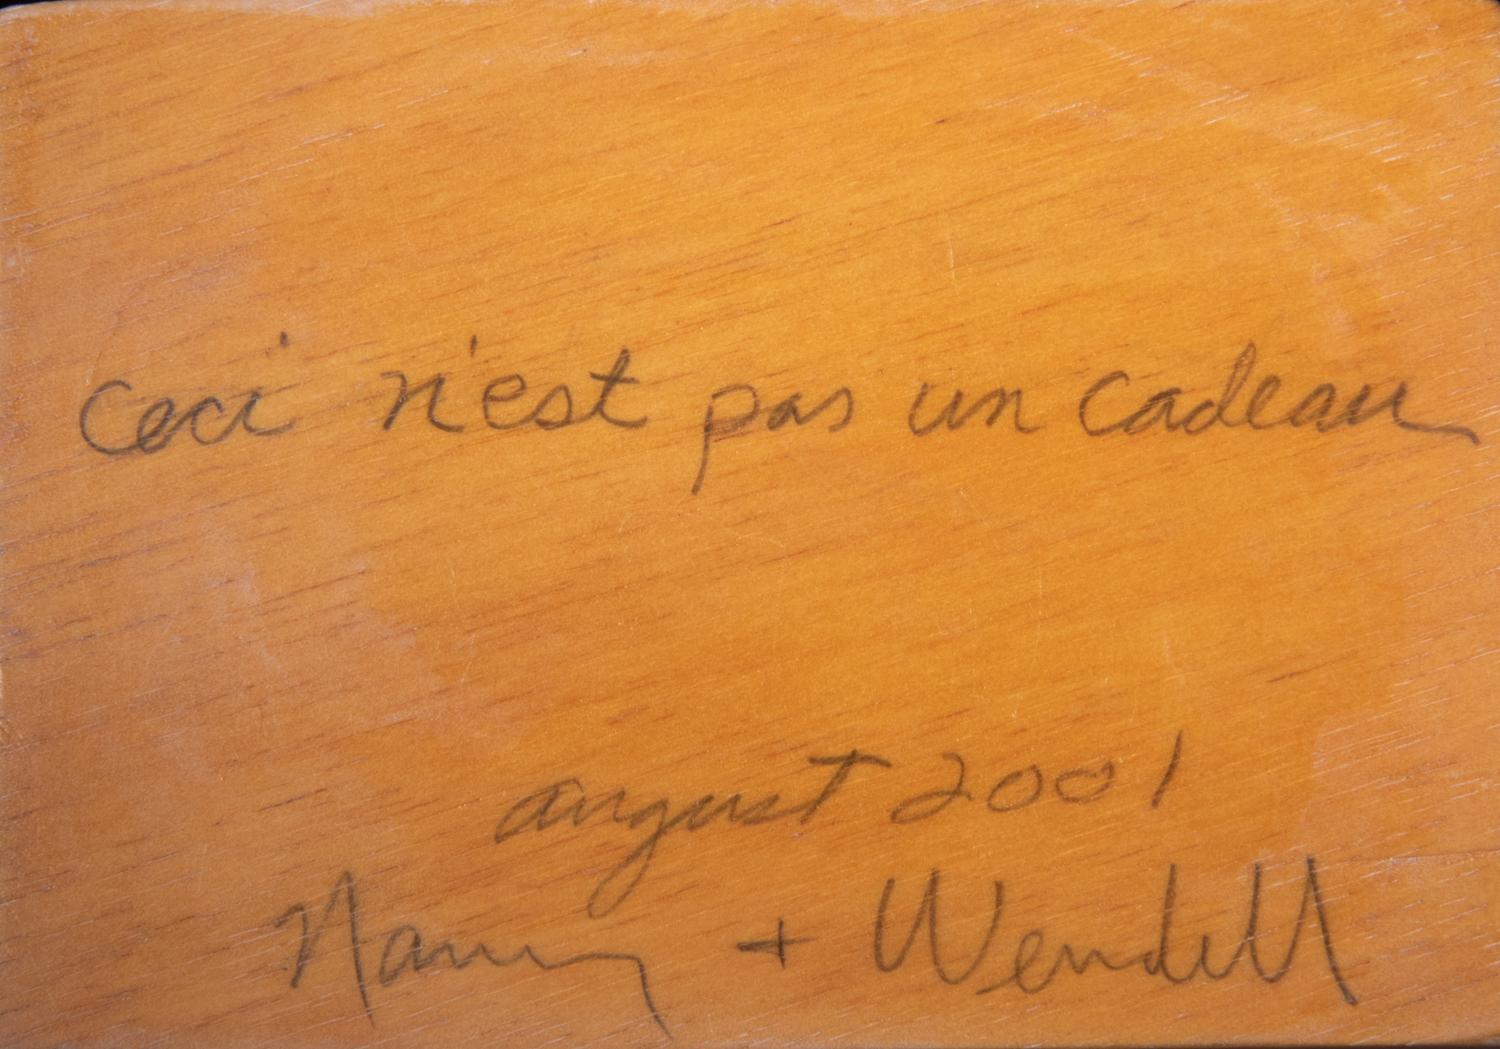 Ceci n'est pas un cadeau
august 2001
Nancy + Wendell